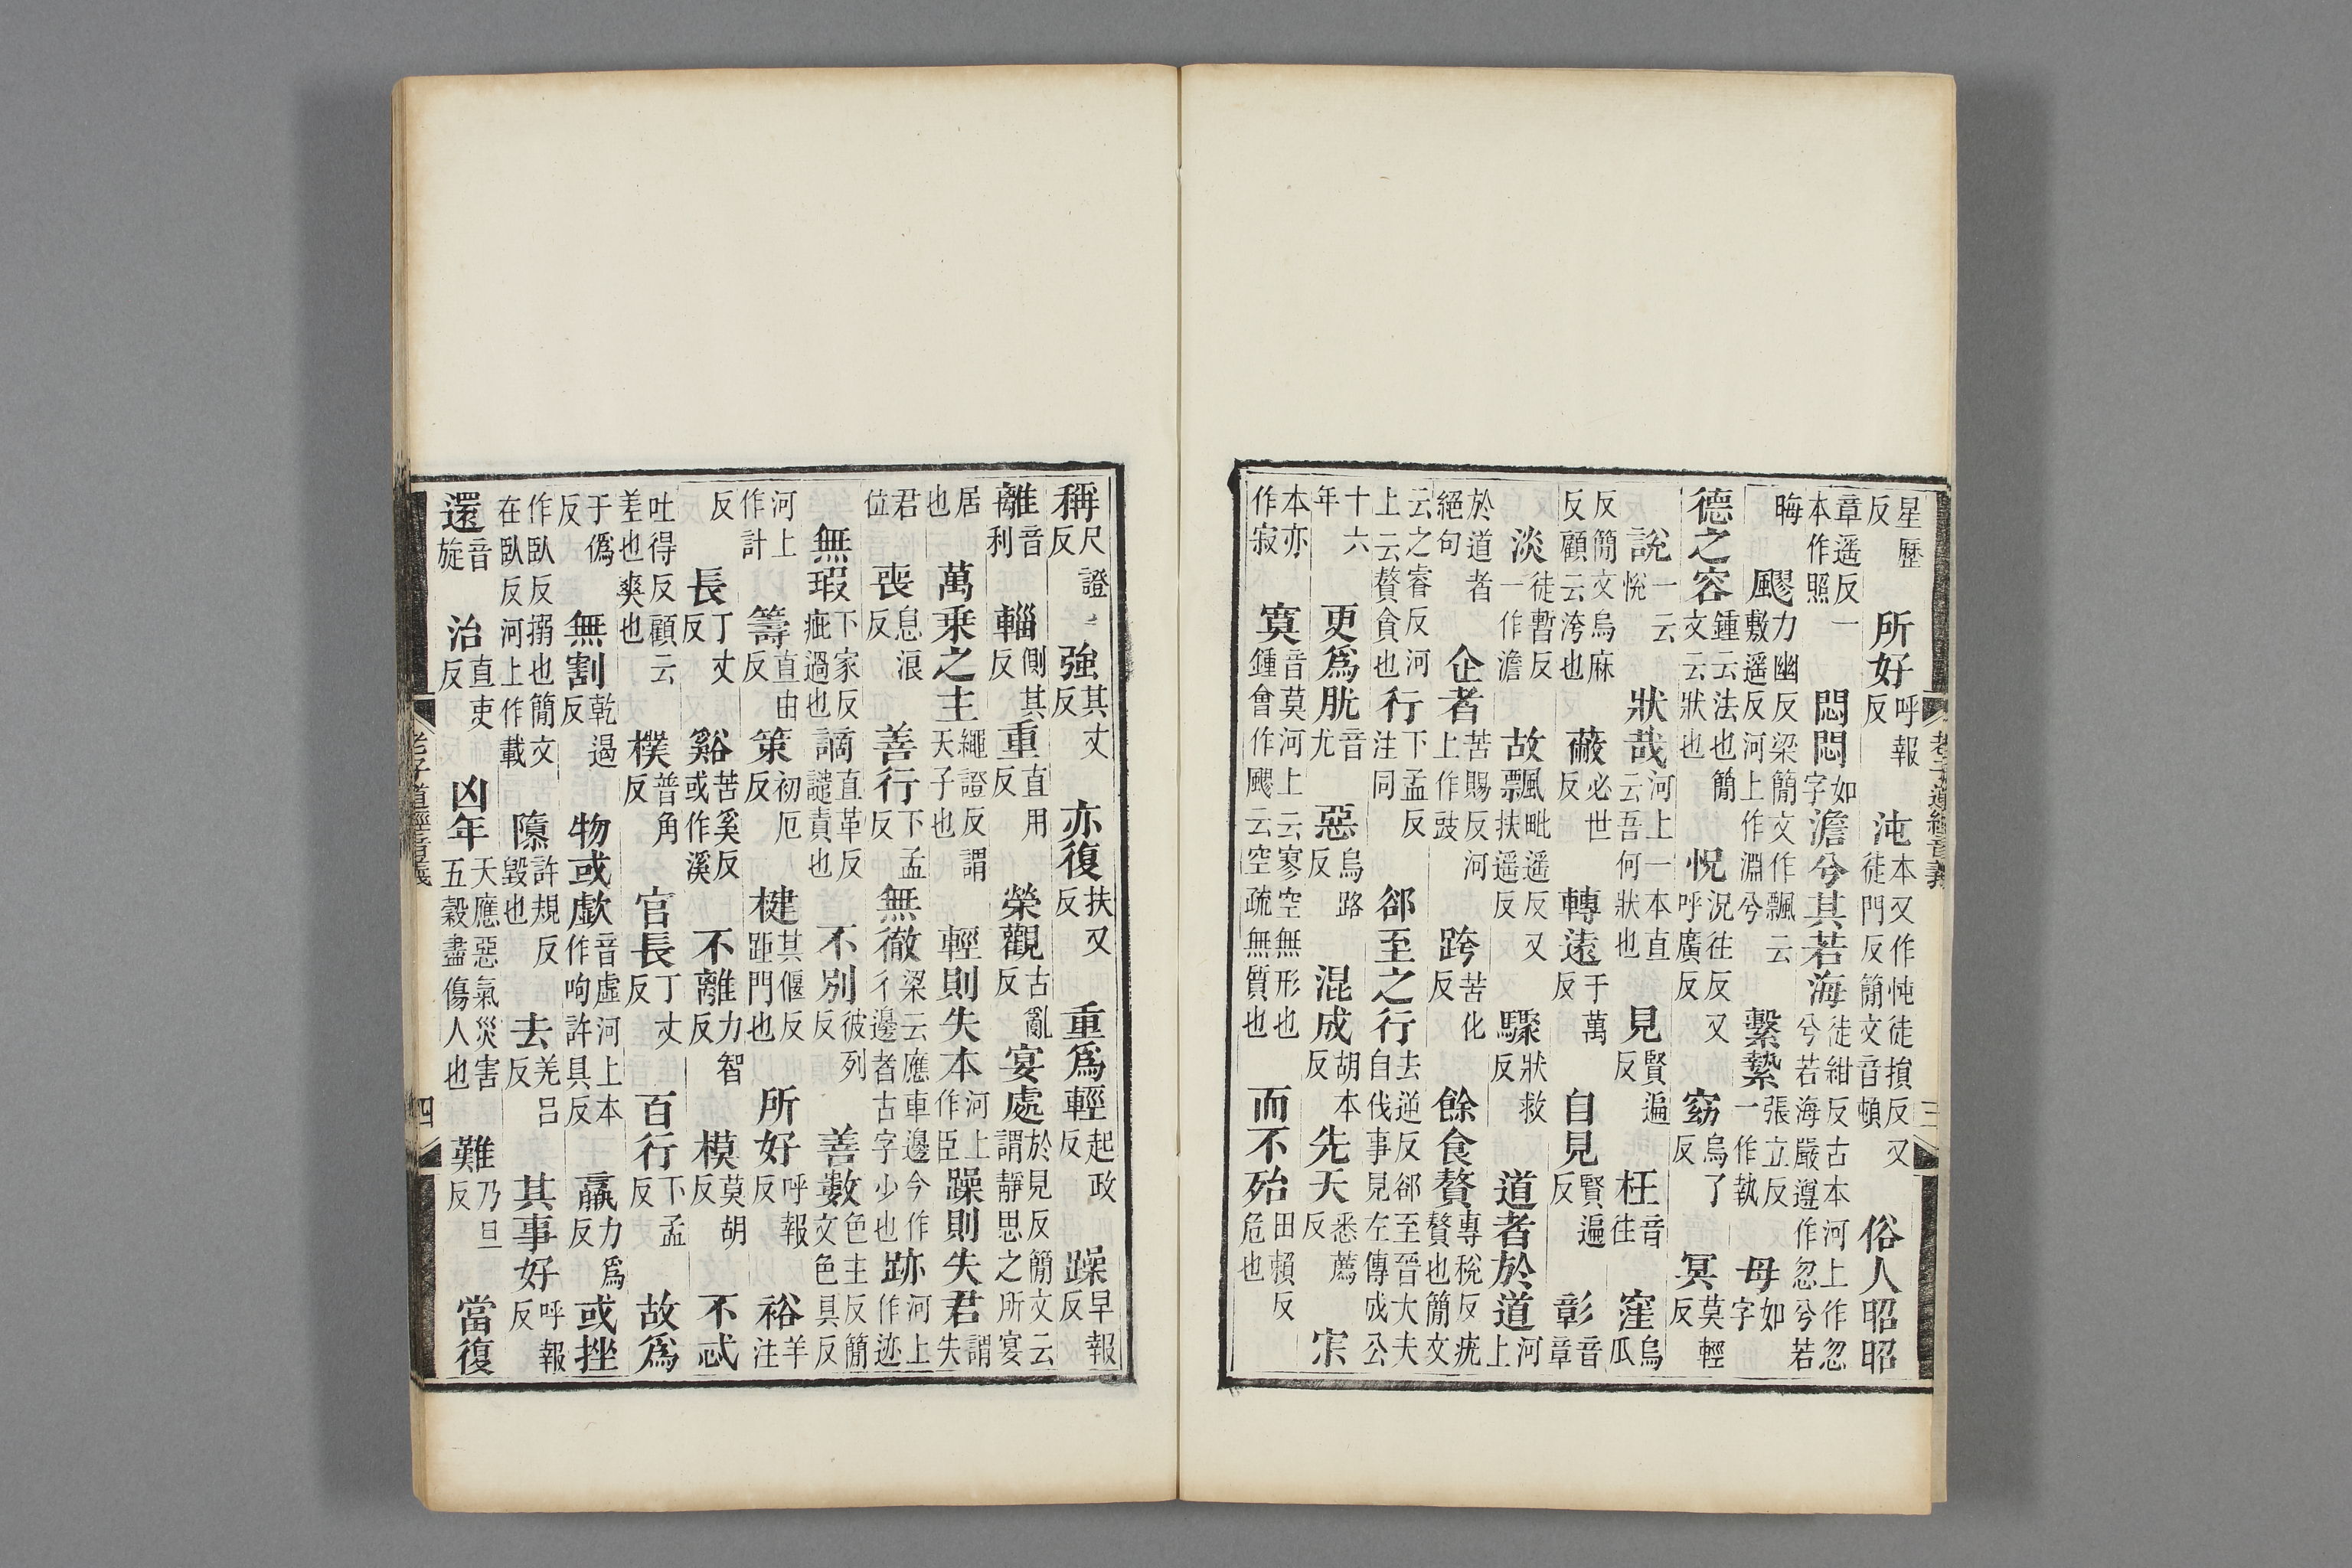 老子道經音義 三
星歷反 所好呼報反 沌本又作忳徒損反又徒門反簡文音頓 俗人昭昭
章遥反一本作照 悶悶如字 澹兮其若海徒紺反古本河上作忽兮若海嚴遵作忽兮若
晦 飂力幽反梁簡文作飄云敷遥反河上作淵兮 繫縶張立反一作執 母如字
德之容鍾云法也簡文云狀也 怳況往反又呼廣反 窈烏了反 冥莫輕反
說一云悅 狀哉河上一本直云吾何狀也 見賢遍反 枉音往 窪烏瓜
反簡文烏麻反顧云洿也 蔽必世反 轉遠于萬反 自見賢遍反 彰音章
淡徒暫反一作澹 故飄毗遥反又扶遥反 驟狀救反 道者於道河上
於道者絕句 企者苦賜反河上作豉 跨苦化反 餘食贅專稅反疣贅也簡文
云之睿反河上云贅貪也 行下孟反注同 郤至之行去逆反郤至晉大夫自伐事見左傳成公
十六年 更爲肬音尤 惡烏路反 混成胡本反 先天悉薦反 宗
本亦作寂 寞音莫河上云寥空無形也鍾會作飂云空疏無質也 而不殆田賴反危也
稱尺證反 強其丈反 亦復扶又反 重爲輕起政反 躁早報反
離音利 輜側其反 重直用反 榮觀古亂反 宴處於見反簡文云謂靜思之所宴
居也 萬乘之主繩證反謂天子也 輕則失本河上作臣 躁則失君謂失
君位 喪息浪反 善行下孟反 無徹梁云應車邊今作彳邊者古字少也 跡河上作迹
無瑕下家反疵過也 謫直革反譴責也 不別彼列反 善數色主反簡文色具反
河上作計 籌直由反 策初厄反 楗其偃反距門也 所好呼報反 裕羊注
反 長丁丈反 谿苦奚反或作溪 不離力智反 模莫胡反 不忒
吐得反顧云差也爽也 樸普角反 官長丁丈反 百行下孟反 故爲
于僞反 無割乾遏反 物或歔音虛河上本作呴許具反 羸力爲反 或挫
作臥反搦也簡文在臥反河上作載 隳許規反毀也 去羌呂反 其事好呼報反
還音旋 治直吏反 凶年天應惡氣災害五穀盡傷人也 難乃旦反 當復
老子道經音義 四